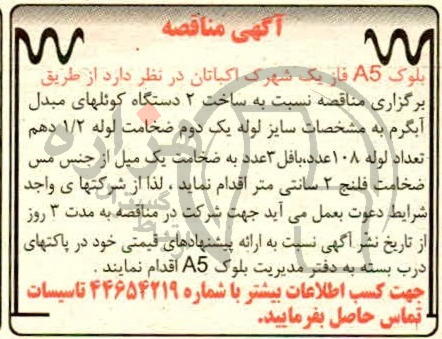 آگهی مناقصه
بلوک A5 فاز یک شهرک اکباتان در نظر دارد از طریق
برگزاری مناقصه نسبت به ساخت ۲ دستگاه کوئلهای مبدل
آبگرم به مشخصات سایز لوله یک دوم ضخامت لوله ۱/۲ دهم
تعداد لوله ۱۰۸عدد،بافل۳عدد به ضخامت یک میل از جنس مس
ضخامت فلنج ۲ سانتی متر اقدام نماید ، لذا از شرکتها ی واجد
شرایط دعوت بعمل می آید جهت شرکت در مناقصه به مدت ۳ روز
از تاریخ نشر آگهی نسبت به ارائه پیشنهادهای قیمتی خود در پاکتهای
درب بسته به دفتر مدیریت بلوک A5 اقدام نمایند .
جهت کسب اطلاعات بیشتر با شماره ۴۴۶۵۴۲۱۹ تاسیسات
تماس حاصل بفرمایید.